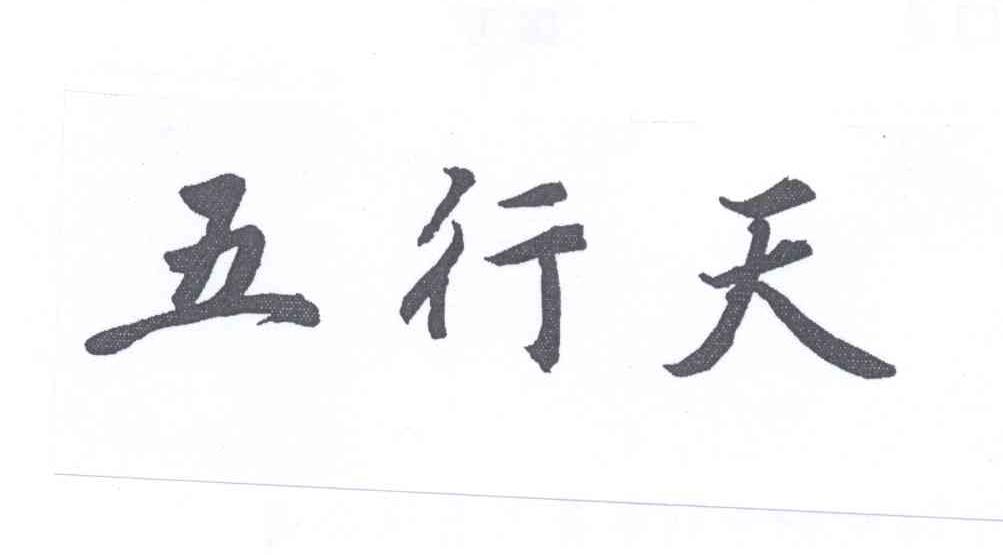 五行天